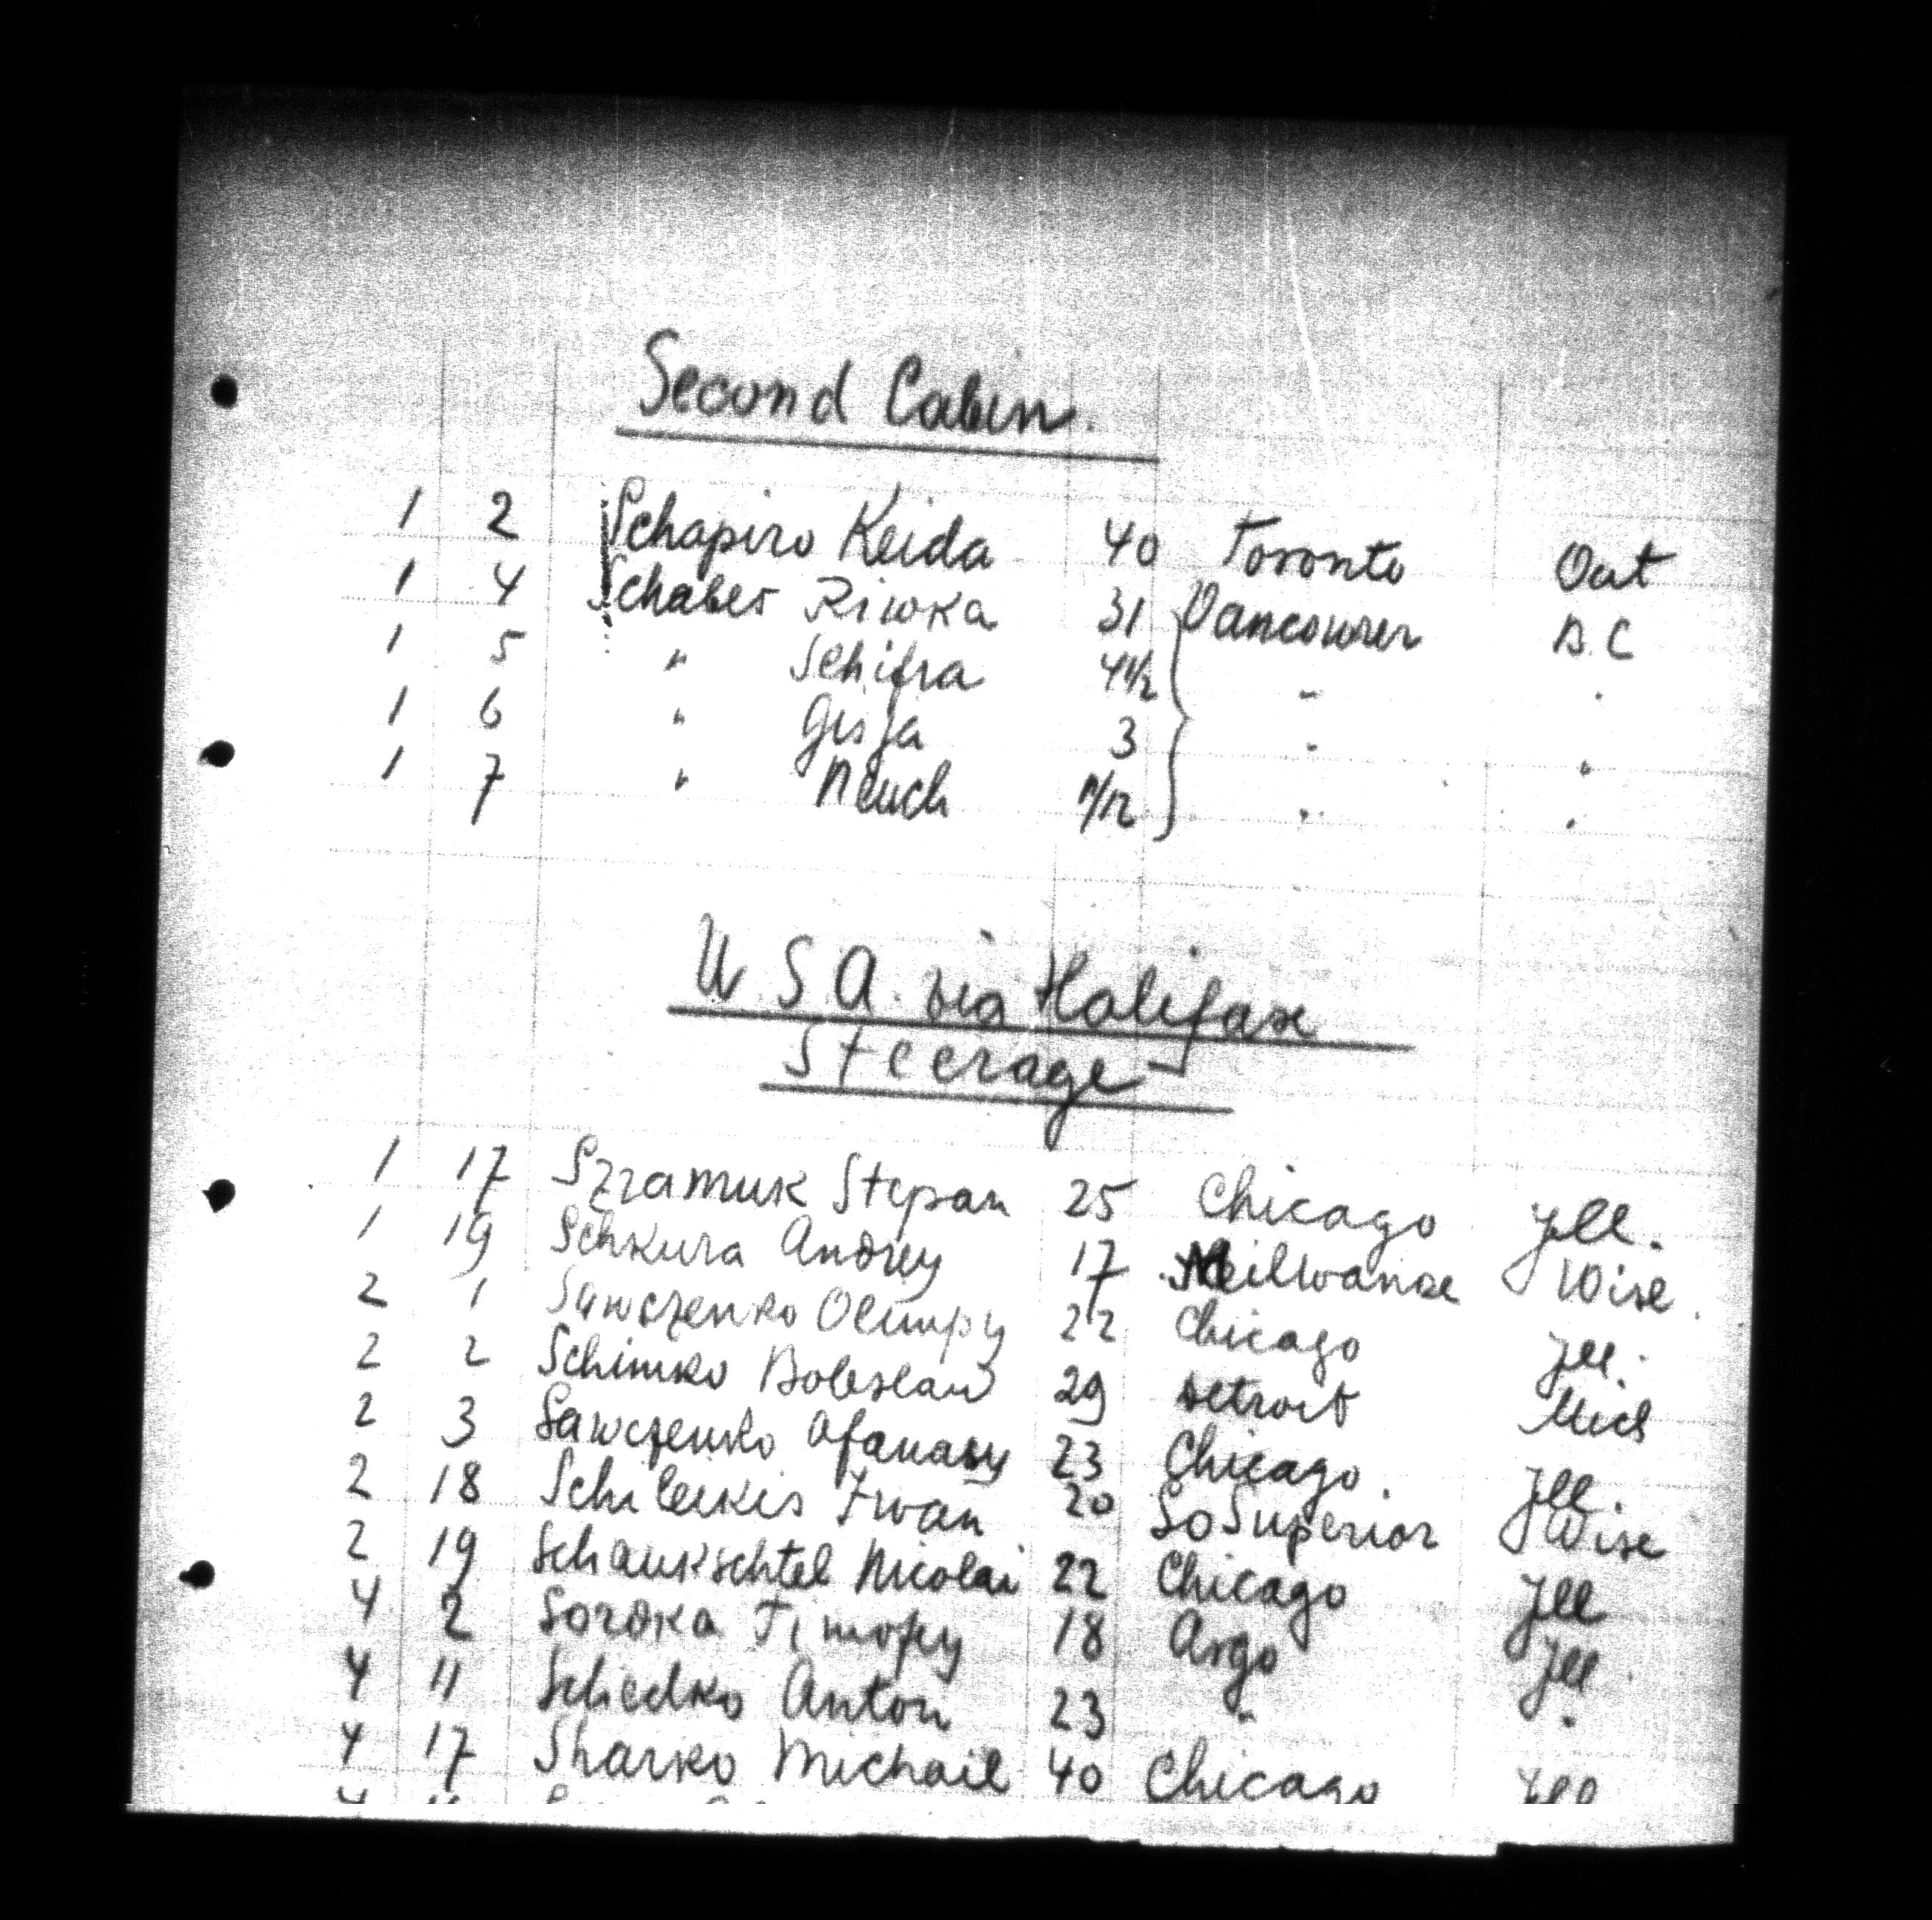 Second Cabin.
1 2 Schapiro Keida 40 Toronto Ont
1 4 Schaber Riwka 31 Vancouver B.C
1 5 " Schifra 4 1/2 " "
1 6 " Gisja 3 " "
1 7 " Neuch /12 " "
U.S.A. via Halifax
Steerage
1 17 Szramuk Stepan 25 Chicago Ill.
1 19 Schkura Andrey 17 Meilwanse Wise.
2 1 Sawczenko Olimpy 22 Chicago Ill.
2 2 Schimko Boleslaw 29 Detroit Mich
2 3 Sawczenko Afanasy 23 Chicago. Ill.
2 18 Schileikis Iwan 20 So Superior Wise
2 19 Schaukschtel Nicolai 22 Chicago Ill
4 2 Soroka Timofey 18 Argo Ill.
4 11 Schedko Anton 23 " "
4 17 Sharko Michail 40 Chicago Ill